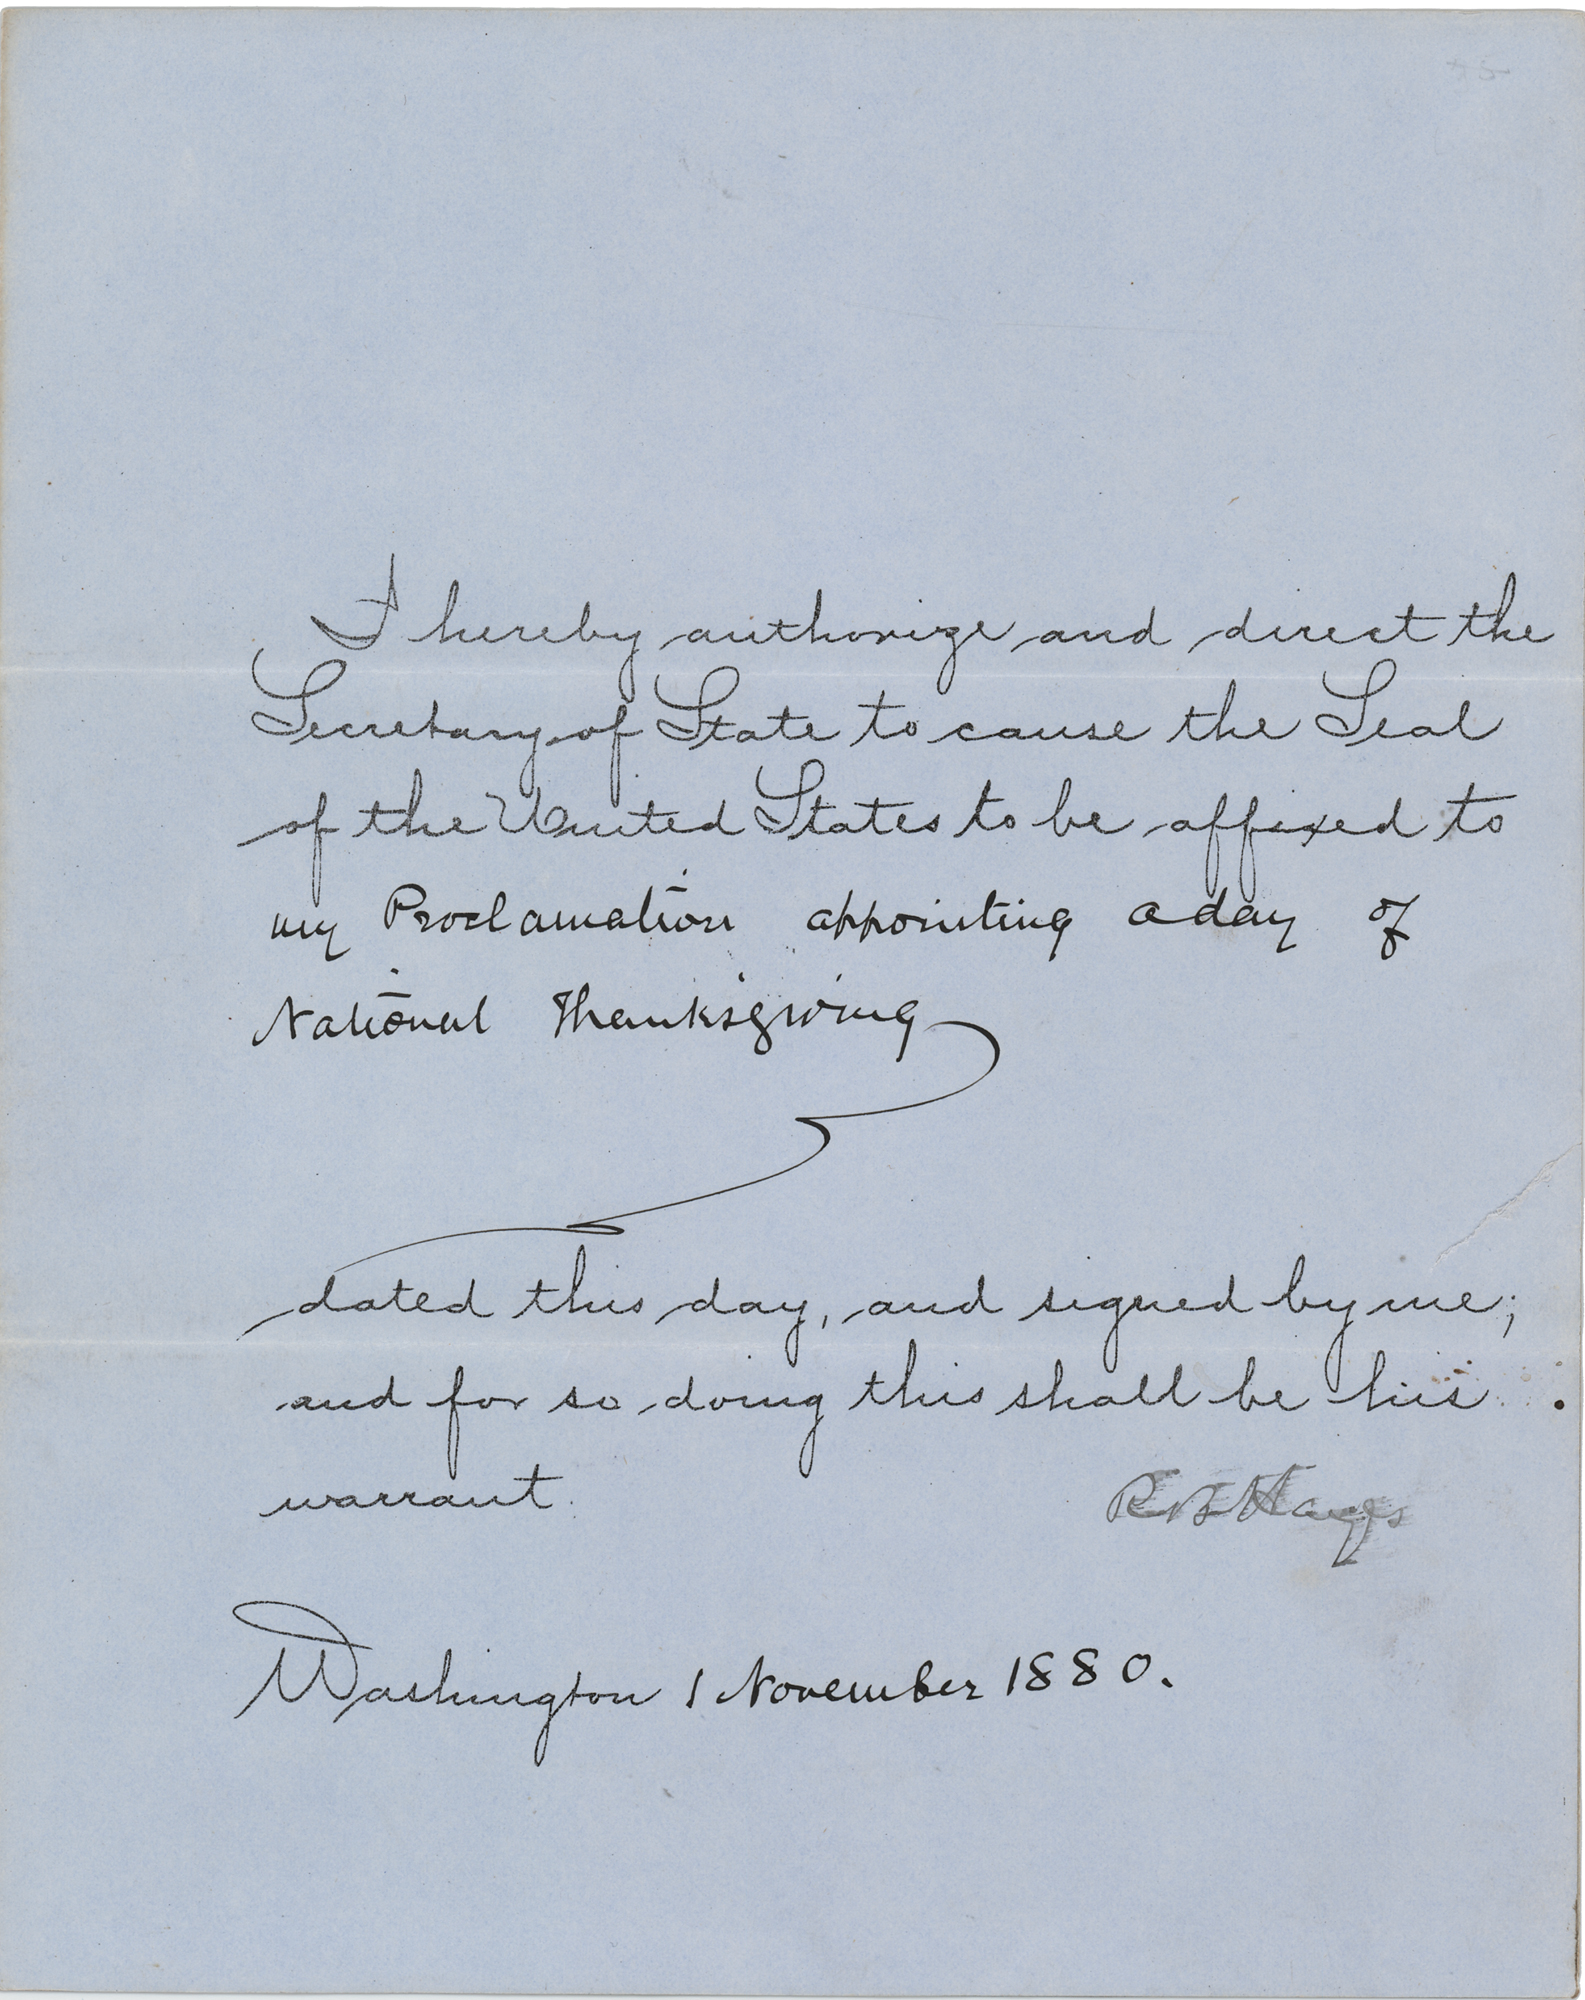 I hereby authorize and direct the
Secretary of State to cause the Seal
of the United States to be affixed to
my Proclamation appointing a day of
National Thanksgiving
dated this day, and signed by me;
and for so doing this shall be his
warrant.
R B Hayes
Washington 1 November 1880.